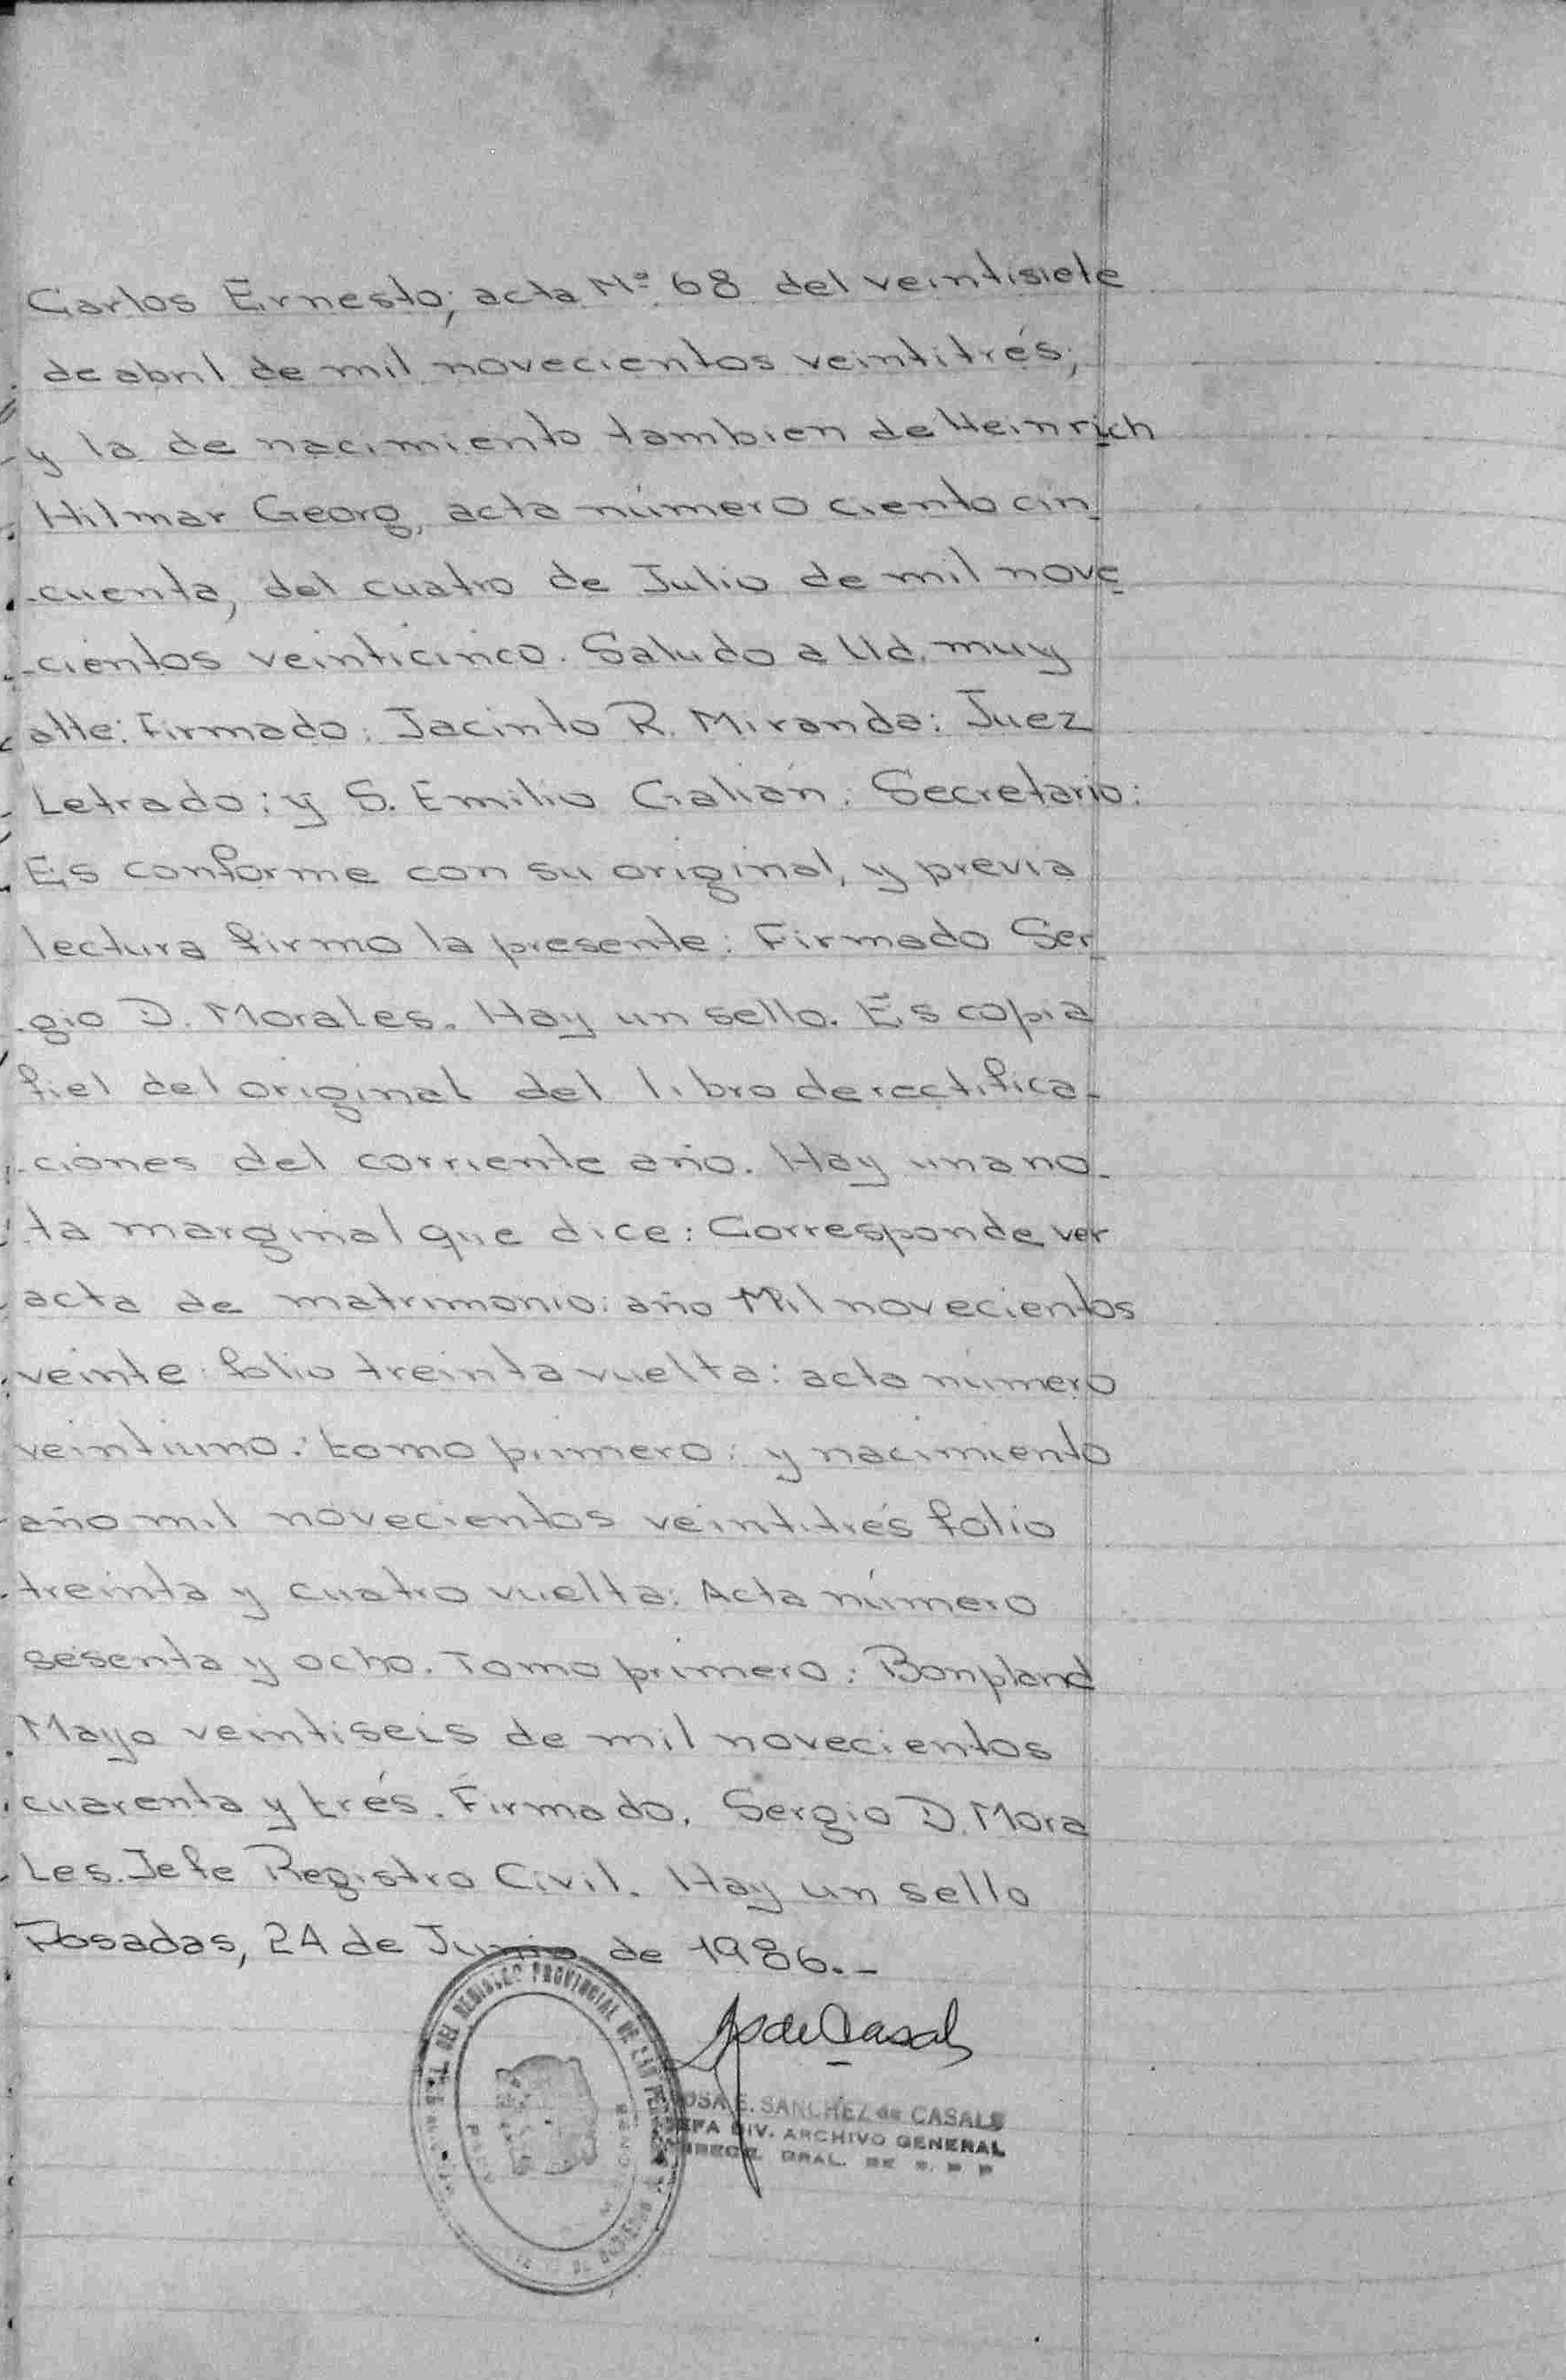 Carlos Ernesto; acta Nº 68 del veintisiete
de abril de mil novecientos veintitrés;
y la de nacimiento tambien de Heinrich
Hilmar Georg, acta número ciento cin-
-cuenta, del cuatro de Julio de mil nove-
-cientos veinticinco. Saludo a Ud. muy
atte: Firmado: Jacinto R. Miranda: Juez
Letrado: y S. Emilio Galián: Secretario:
Es conforme con su original, y previa
lectura firmo la presente: Firmado Ser-
-gio D. Morales. Hay un sello. Es copia
fiel del original del libro de rectifica-
-ciones del corriente año. Hay una no-
-ta marginal que dice: Corresponde ver
acta de matrimonio: año Mil novecientos
veinte folio treinta vuelta: acta número
veintiuno. tomo primero: y nacimiento
año mil novecientos veintitrés folio
treinta y cuatro vuelta: Acta número
sesenta y ocho. Tomo primero: Bonpland
Mayo veintiseis de mil novecientos
cuarenta y trés. Firmado. Sergio D. Mora
les. Jefe Registro Civil. Hay un sello
Posadas, 24 de Junio de 1986.-
de Casals
DEL REGISTRO PROVINCIAL DE LAS
OSA E. SANCHEZ de CASALS
EFA DIV. ARCHIVO GENERAL
GRAL. DE